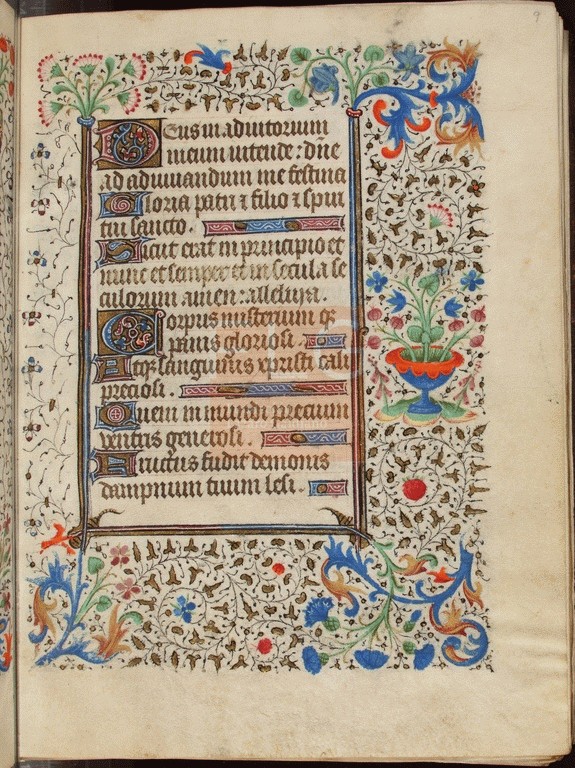 9
Deus in adiutorium
meum intende : dne
ad adiuuandum me festina
Gloria patri ⁊ filio ⁊ spiri
tui sancto.
Sicut erat in principio et
nunc et semper et in secula se
culorum amen : alleluya.
Corpus misterium q̄
prauis gloriosi.
Atq̄ sanguinis xpristi cali
preciosi.
Quem in mundi precium
ventris generosi.
Fructus fudit demonis
dampnium tuium lesi.